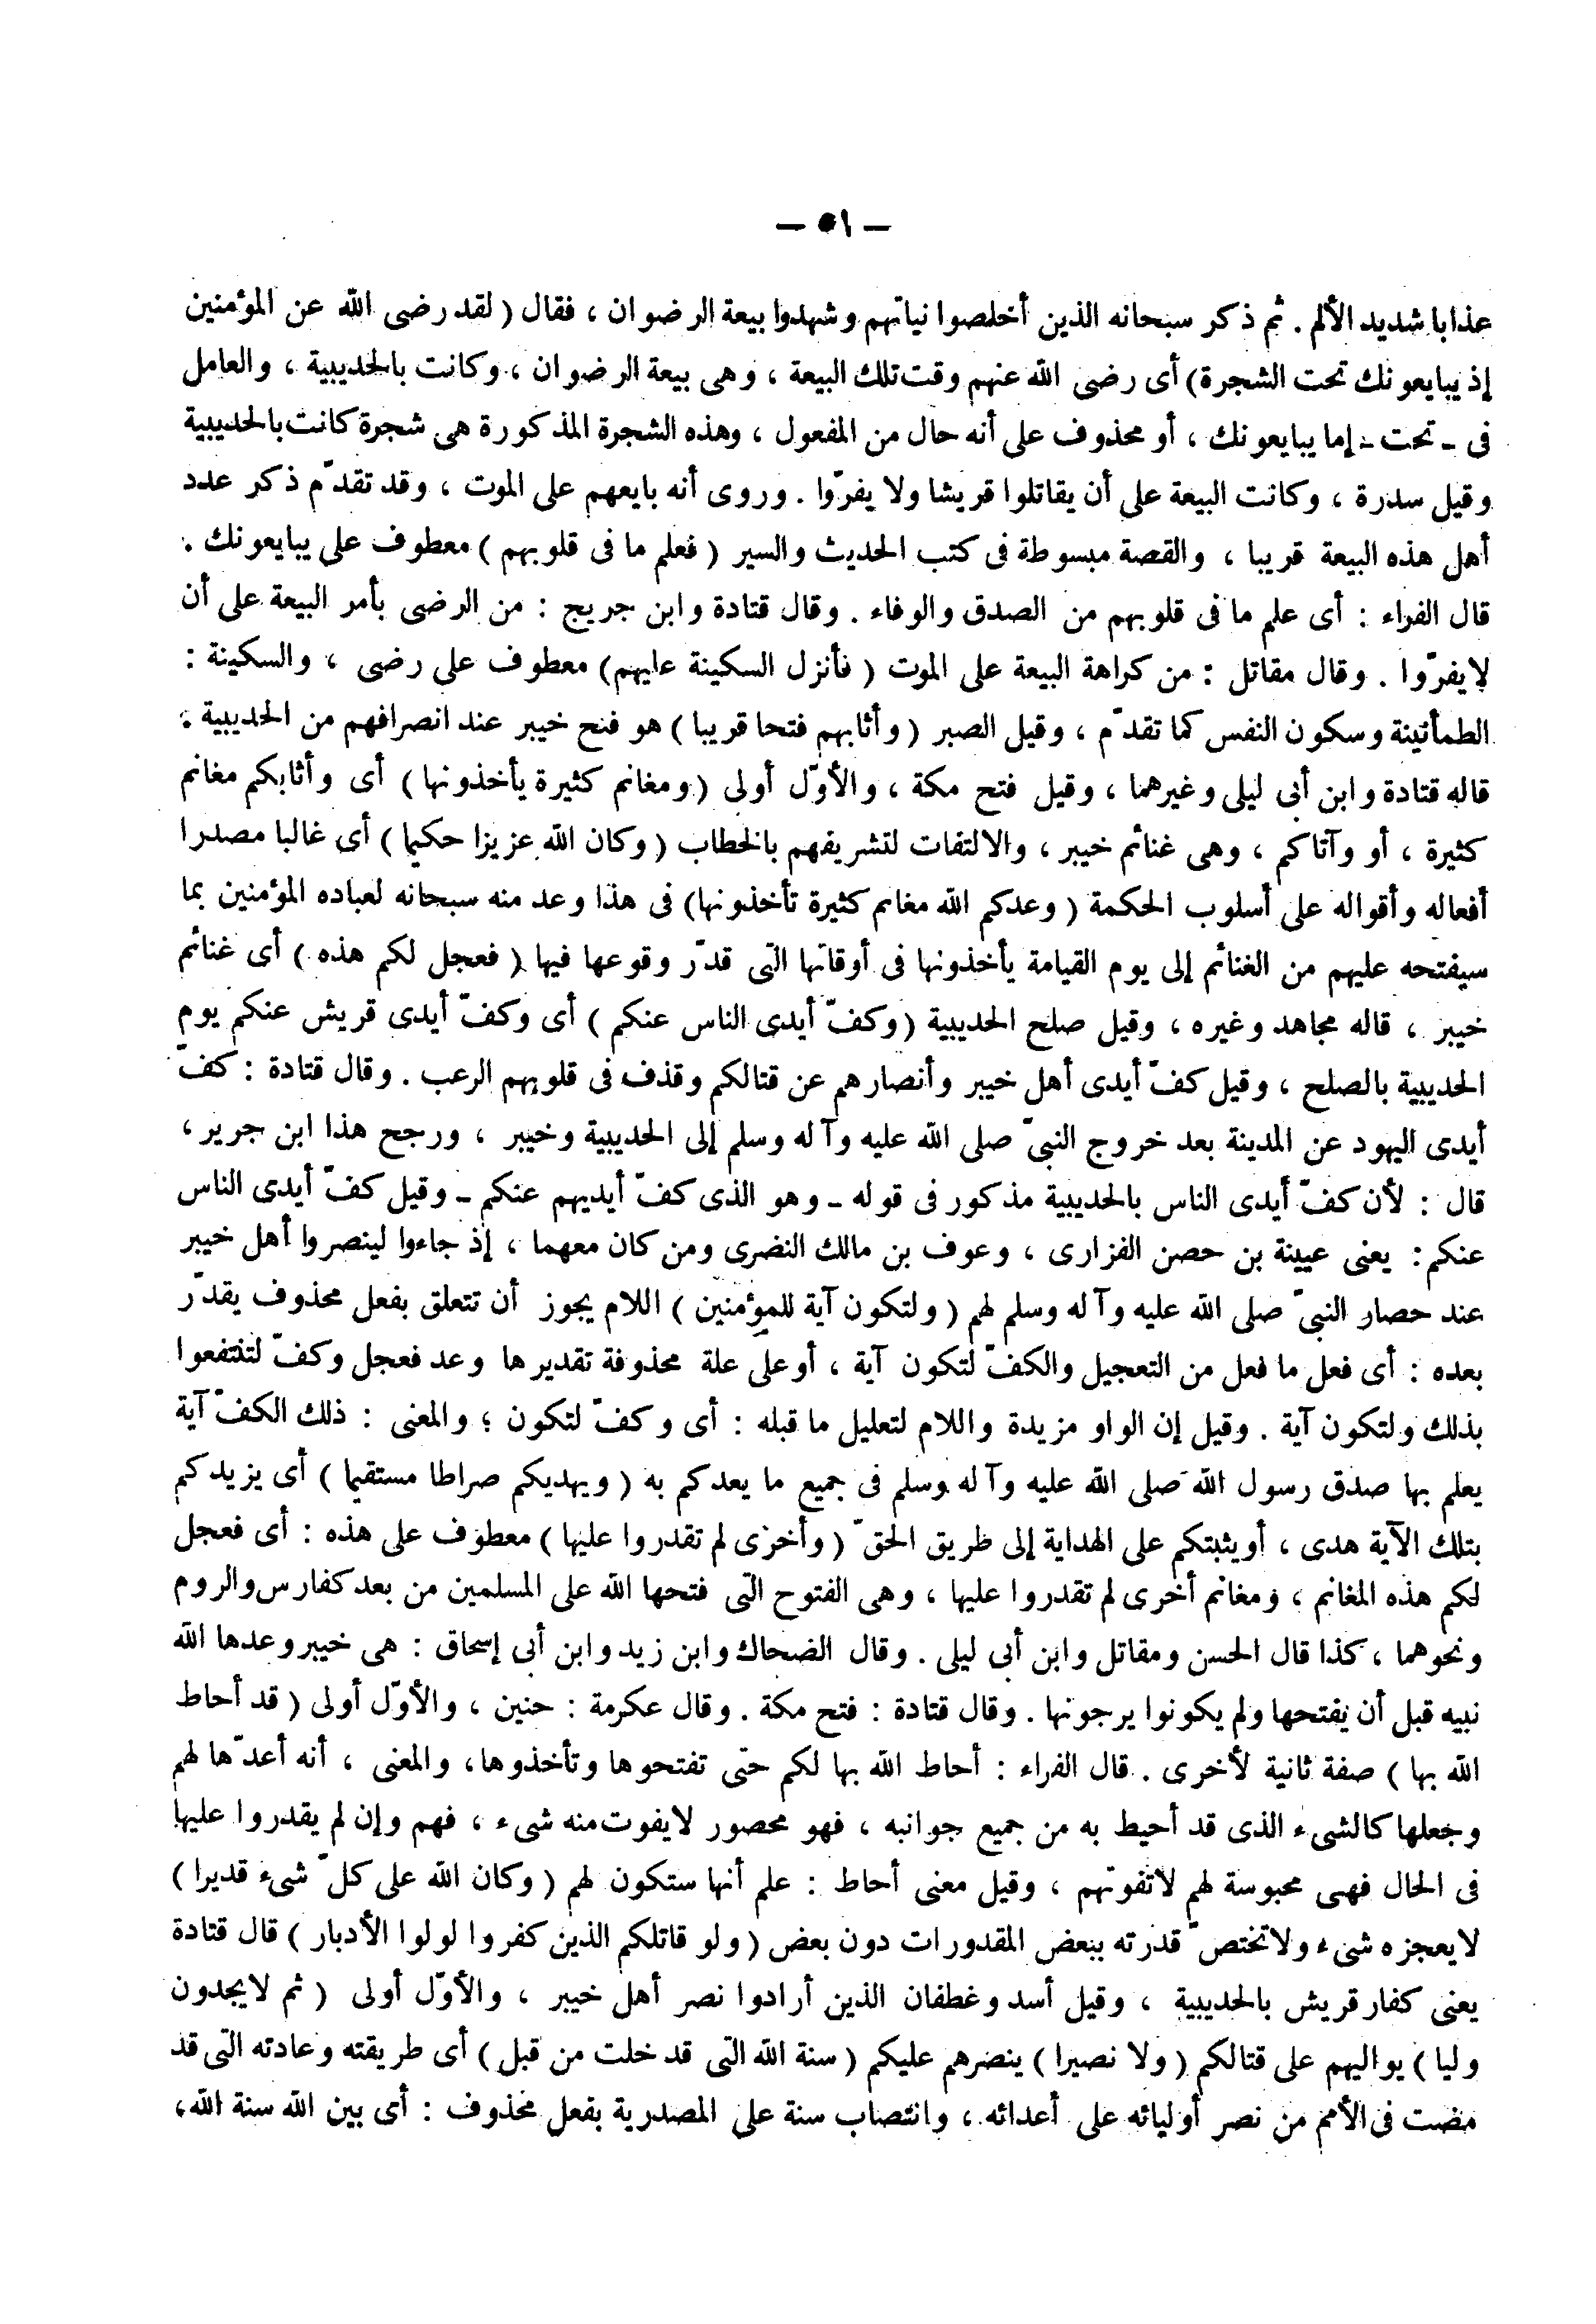 — ٥١ —
عذابا شديد الألم . ثم ذكر سبحانه الذين أخلصوا نياتهم وشهدوا بيعة الرضوان ، فقال ( لقد رضى الله عن المؤمنين
إذ يبايعونك تحت الشجرة) أى رضى الله عنهم وقت تلك البيعة ، وهى بيعة الرضوان ، وكانت بالحديبية ، والعامل
فى ـ تحت ـ إما يبايعونك ، أو محذوف على أنه حال من المفعول ، وهذه الشجرة المذكورة هى شجرة كانت بالحديبية
وقيل سدرة ، وكانت البيعة على أن يقاتلوا قريشا ولا يفرّوا . وروى أنه بايعهم على الموت ، وقد تقدّم ذكر عدد
أهل هذه البيعة قريبا ، والقصة مبسوطة فى كتب الحديث والسير ( فعلم ما فى قلوبهم ) معطوف على يبايعونك .
قال الفراء : أى علم ما فى قلوبهم من الصدق والوفاء . وقال قتادة وابن جريج : من الرضى بأمر البيعة على أن
لايفرّوا . وقال مقاتل : من كراهة البيعة على الموت ( فأنزل السكينة عليهم) معطوف على رضى ، والسكينة :
الطمأنينة وسكون النفس كما تقدّم ، وقيل الصبر ( وأثابهم فتحا قريبا ) هو فتح خيبر عند انصرافهم من الحديبية :
قاله قتادة وابن أبى ليلى وغيرهما ، وقيل فتح مكة ، والأوّل أولى ( ومغانم كثيرة يأخذونها ) أى وأثابكم مغانم
كثيرة ، أو وآتاكم ، وهى غنائم خيبر ، والالتفات لتشريفهم بالخطاب ( وكان الله عزيزا حكيما ) أى غالبا مصدرا
أفعاله وأقواله على أسلوب الحكمة ( وعدكم الله مغانم كثيرة تأخذونها) فى هذا وعد منه سبحانه لعباده المؤمنين بما
سيفتحه عليهم من الغنائم إلى يوم القيامة يأخذونها فى أوقاتها التى قدّر وقوعها فيها ( فعجل لكم هذه ) أى غنائم
خيبر ، قاله مجاهد وغيره ، وقيل صلح الحديبية ( وكفّ أيدى الناس عنكم ) أى وكفّ أيدى قريش عنكم يوم
الحديبية بالصلح ، وقيل كفّ أيدى أهل خيبر وأنصارهم عن قتالكم وقذف فى قلوبهم الرعب . وقال قتادة : كفّ
أيدى اليهود عن المدينة بعد خروج النبىّ صلى الله عليه وآله وسلم إلى الحديبية وخيبر ، ورجح هذا ابن جرير ،
قال : لأن كفّ أيدى الناس بالحديبية مذكور فى قوله ـ وهو الذى كفّ أيديهم عنكم ـ وقيل كفّ أيدى الناس
عنكم : يعنى عيينة بن حصن الفزارى ، وعوف بن مالك النضرى ومن كان معهما ، إذ جاءوا لينصروا أهل خيبر
عند حصار النبىّ صلى الله عليه وآله وسلم لهم ( ولتكون آية للمؤمنين ) اللام يجوز أن تتعلق بفعل محذوف يقدّر
بعده : أى فعل ما فعل من التعجيل والكفّ لتكون آية ، أو على علة محذوفة تقديرها وعد فعجل وكفّ لتنتفعوا
بذلك ولتكون آية . وقيل إن الواو مزيدة واللام لتعليل ما قبله : أى وكفّ لتكون ؛ والمعنى : ذلك الكفّ آية
يعلم بها صدق رسول الله صلى الله عليه وآله وسلم فى جميع ما يعدكم به ( ويهديكم صراطا مستقيما ) أى يزيدكم
بتلك الآية هدى ، أو يثبتكم على الهداية إلى طريق الحقّ ( وأخرى لم تقدروا عليها ) معطوف على هذه : أى فعجل
لكم هذه المغانم ، ومغانم أخرى لم تقدروا عليها ، وهى الفتوح التى فتحها الله على المسلمين من بعد كفارس والروم
ونحوهما ، كذا قال الحسن ومقاتل وابن أبى ليلى . وقال الضحاك وابن زيد وابن أبى إسحاق : هى خيبر وعدها الله
نبيه قبل أن يفتحها ولم يكونوا يرجونها . وقال قتادة : فتح مكة . وقال عكرمة : حنين ، والأوّل أولى ( قد أحاط
الله بها ) صفة ثانية لأخرى . قال الفراء : أحاط الله بها لكم حتى تفتحوها وتأخذوها ، والمعنى ، أنه أعدّها لهم
وجعلها كالشىء الذى قد أحيط به من جميع جوانبه ، فهو محصور لايفوت منه شىء ، فهم وإن لم يقدروا عليها
فى الحال فهى محبوسة لهم لاتفوتهم ، وقيل معنى أحاط : علم أنها ستكون لهم ( وكان الله على كلّ شىء قديرا )
لايعجزه شىء ولا تختصّ قدرته ببعض المقدورات دون بعض ( ولو قاتلكم الذين كفروا لولوا الأدبار ) قال قتادة
يعنى كفار قريش بالحديبية ، وقيل أسد وغطفان الذين أرادوا نصر أهل خيبر ، والأوّل أولى ( ثم لايجدون
وليا ) يواليهم على قتالكم ( ولا نصيرا ) ينصرهم عليكم ( سنة الله التى قد خلت من قبل ) أى طريقته وعادته التى قد
مضت فى الأمم من نصر أوليائه على أعدائه ، وانتصاب سنة على المصدرية بفعل محذوف : أى بين الله سنة الله ،